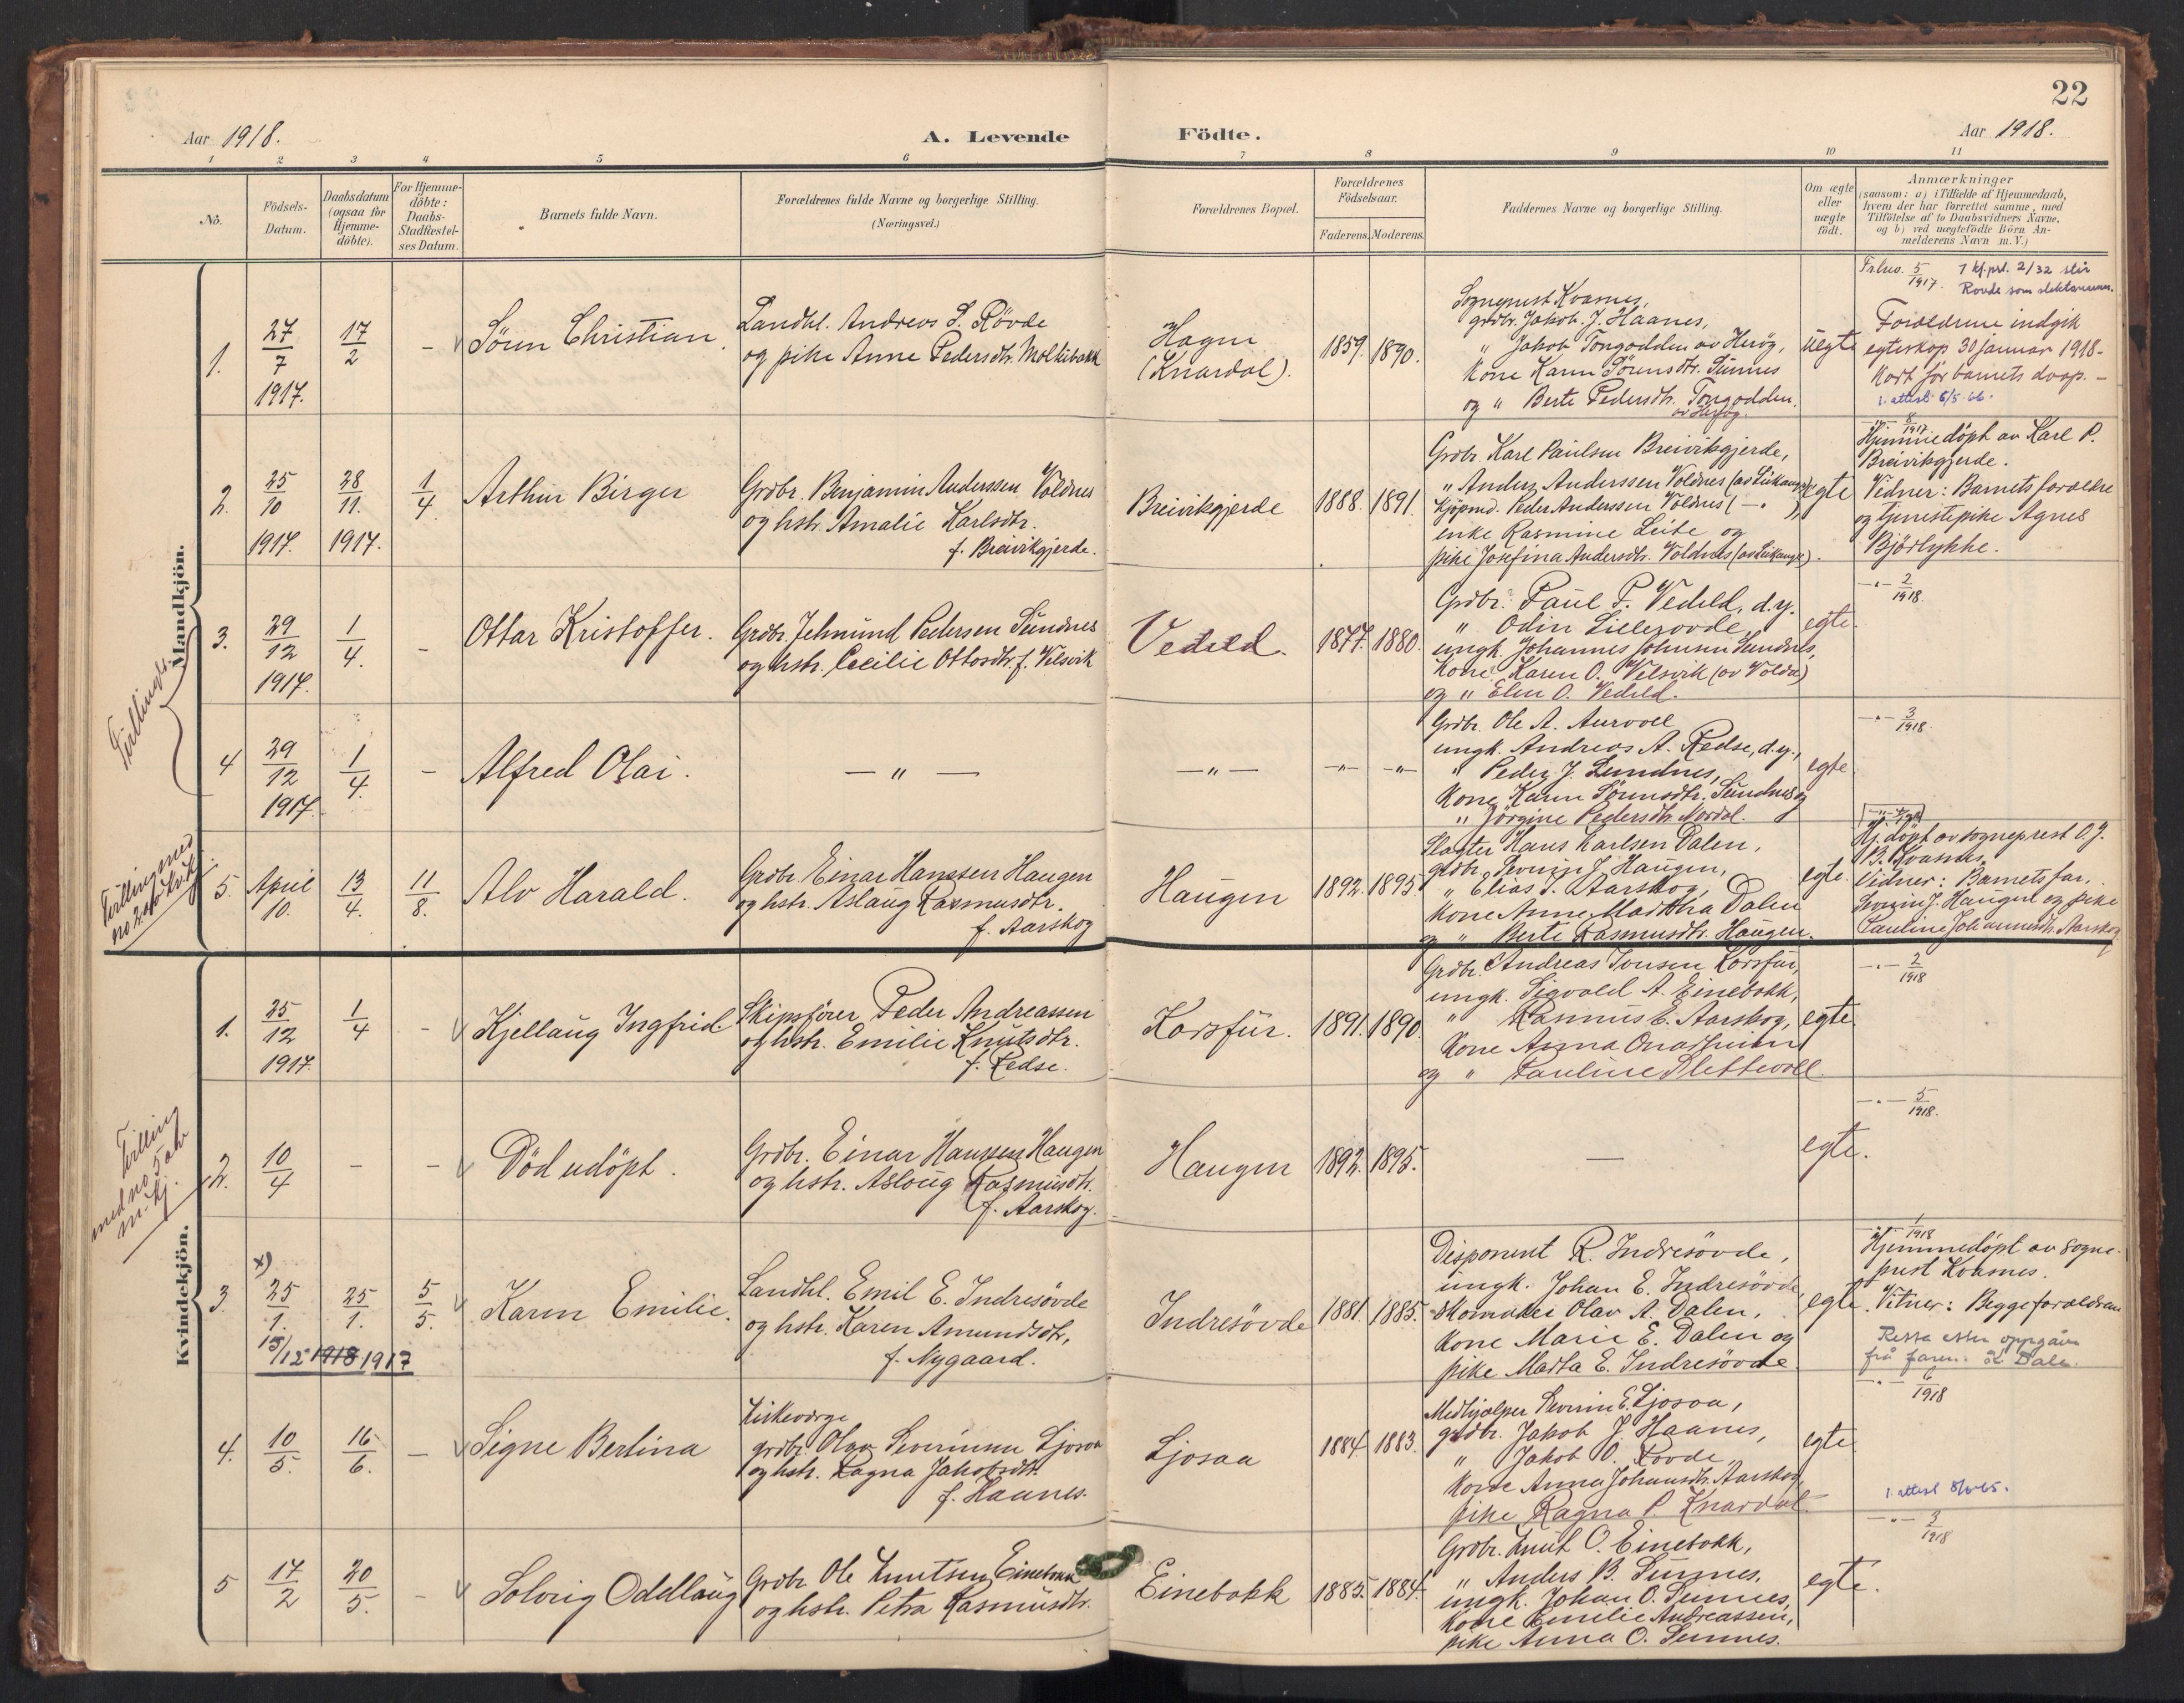 22
Aar 1918.
A. Levende
Födte.
Aar 1918.
1 2 3 4 5 6 7 8 9 10 11
No.
Födsels-
Datum.
Daabsdatum
(ogsaa for
Hjemme-
döbte).
For Hjemme-
döbte:
Daabs-
Stadfæstel-
ses Datum.
Barnets fulde Navn.
Forældrenes fulde Navne og borgerlige Stilling.
(Næringsvei.)
Forældrenes Bopæl.
Forældrenes
Födselsaar.
Faderens.
Moderens.
Faddernes Navne og borgerlige Stilling.
Om ægte
eller
uægte
födt.
Anmærkninger
(saasom: a) i Tilfælde af Hjemmedaab,
hvem der har forrettet samme, med
Tilföielse af to Daabsvidners Navne,
og b) ved uægtefödte Börn An-
melderens Navn m. V.)
Mandkjön.
1.
27/7
1917.
17/2
-
Søren Christian.
Landhl. Andreas S. Røvde
og pike Anne Pedersdtr. Moltubakk
Hagen
(Knardal).
1859.
1890.
Sogneprest Kvasnes,
grdbr. Jakob J. Haanes,
" Jakob Tongodden av Herøy,
Kone Karen Sørensdtr. Sunnes
og " Berte Pedersdtr. Tongodden.
av Herøy.
uegte
5/1917.
1 kf.prt. 2/32 står
Rovde som slektsnavn.
Foreldrene indgik
egteskap 30 januar 1918 -
kort før barnets daap. -
1. attest 6/5 66.
2.
25/10
1917.
28/11.
1917.
1/4.
Arthur Birger
Grdbr. Benjamin Anderssen Voldnes
og hstr. Amalie Karlsdtr.
f. Breivikgjerde.
Breivikgjerde
1888.
1891.
Grdbr. Karl Paulsen Breivikgjerde,
" Anders Anderssen Voldnes (av Eiksund)
Kjøpmd. Peder Anderssen Voldnes ( - " )
enke Rasmine Leite og
pike Josefina Andersdtr. Voldnes
egte
8/1917
Hjemmedøpt av Karl P.
Breivikgjerde.
Vidner: Barnets foreldre
og tjenestepike Agnes
Bjørlykke.
Tvillinger.
3.
29/12
1917.
1/4.
-
Ottar Kristoffer.
Grdbr. Jetmund Pedersen Sundnes
og hstr. Cecilie Ottosdtr. f. Velsvik
Vedeld.
1877.
1880.
Grdbr. Paul P. Vedeld, d.y.
" Odin Lillerovde,
ungk. Johannes Johnsen Sundnes,
Kone Karen O. Velsvik (av Volda)
og " Elen O. Vedeld.
egte.
- " - 2/1918.
4
29/12
1917.
1/4.
-
Alfred Olai.
- " -
- " -
- " -
- " -
Grdbr. Ole A. Aurvoll
ungk. Andreas A. Redse, d.y.,
" Peder J. Sundnes,
Kone Karen Sørensdtr. Sundnes og
" Jørgine Pedersdtr. Nordal.
egte
- " - 3/1918.
Tvilling med
no 2 kv.kj.
5.
April
10.
13/4.
11/8.
Alv Harald.
Grdbr. Einar Hanssen Haugen
og hstr. Aslaug Rasmusdtr.
f. Aarskog
Haugen
1892.
1895
Slagter Hans Karlsen Dalen,
grdbr. Severin J. Haugen,
" Elias S. Aarskog,
Kone Anne Martha Dalen
og " Berte Rasmusdtr. Haugen.
egte.
Hj. døpt av sogneprest O. J.
B. Kvasnes.
Vidner: Barnets far,
Severin J. Haugen og pike
Pauline Johannesdtr. Aarskog.
Kvindekjön.
1.
25/12
1917.
1/4
-
Kjellaug Ingfrid.
Skipsfører Peder Andreassen
og hstr. Emilie Knutsdtr.
f. Redse.
Korsfur.
1891.
1890.
Grdbr. Andreas Iversen Korsfur,
ungk. Sigvald A. Einebakk,
" Rasmus E. Aarskog,
Kone Anna Onarheim
og " Pauline Slettevoll.
egte.
- " - 2/1918
Tvilling
med no 5 av
m. kj.
2.
10/4
-
-
Død udøpt.
Grdbr. Einar Hanssen Haugen
og hstr. Aslaug Rasmusdtr.
f. Aarskog.
Haugen
1892.
1895.
-
egte.
- " - 5/1918.
x)
3.
25/1.
15/12 1918 1917
25/1.
5/5.
Karen Emilie.
Landhl. Emil E. Indresøvde
og hstr. Karen Amundsdtr,
f. Nygaard.
Indresøvde
1881.
1885.
Disponent R. Indresøvde,
ungk. Johan E. Indresøvde
skomaker Olav A. Dalen,
Kone Marie E. Dalen og
pike Marta E. Indresøvde
egte.
1/1918
Hjemmedøpt av sogne-
prest Kvasnes.
Vitner: Begge foreldrene
Retta etter oppgåve
frå faren.
4.
10/5.
16/6.
-
Signe Berlina
Kirkeverge
grdbr. Olav Severinsen Ljosaa
og hstr. Ragna Jakobsdtr.
f. Haanes.
Ljosaa
1884
1883.
Medhjælper Severin E. Ljosaa,
grdbr. Jakob J. Haanes,
" Jakob O. Rovde
Kone Anna Johansdtr. Aarskog,
pike Ragna P. Knardal.
egte
- " - 6/1918
1. attest
5
17/2
20/5.
-
Solveig Oddlaug
Grdbr. Ole Knutsen Einebakk
og hstr. Petra Rasmusdtr.
Einebakk
1885.
1884.
Grdbr. Knut O. Einebakk,
" Anders B. Sunnes,
ungk. Johan O. Sunnes,
Kone Emilie Andreassen,
pike Anna O. Sunnes.
egte.
- " - 3/1918